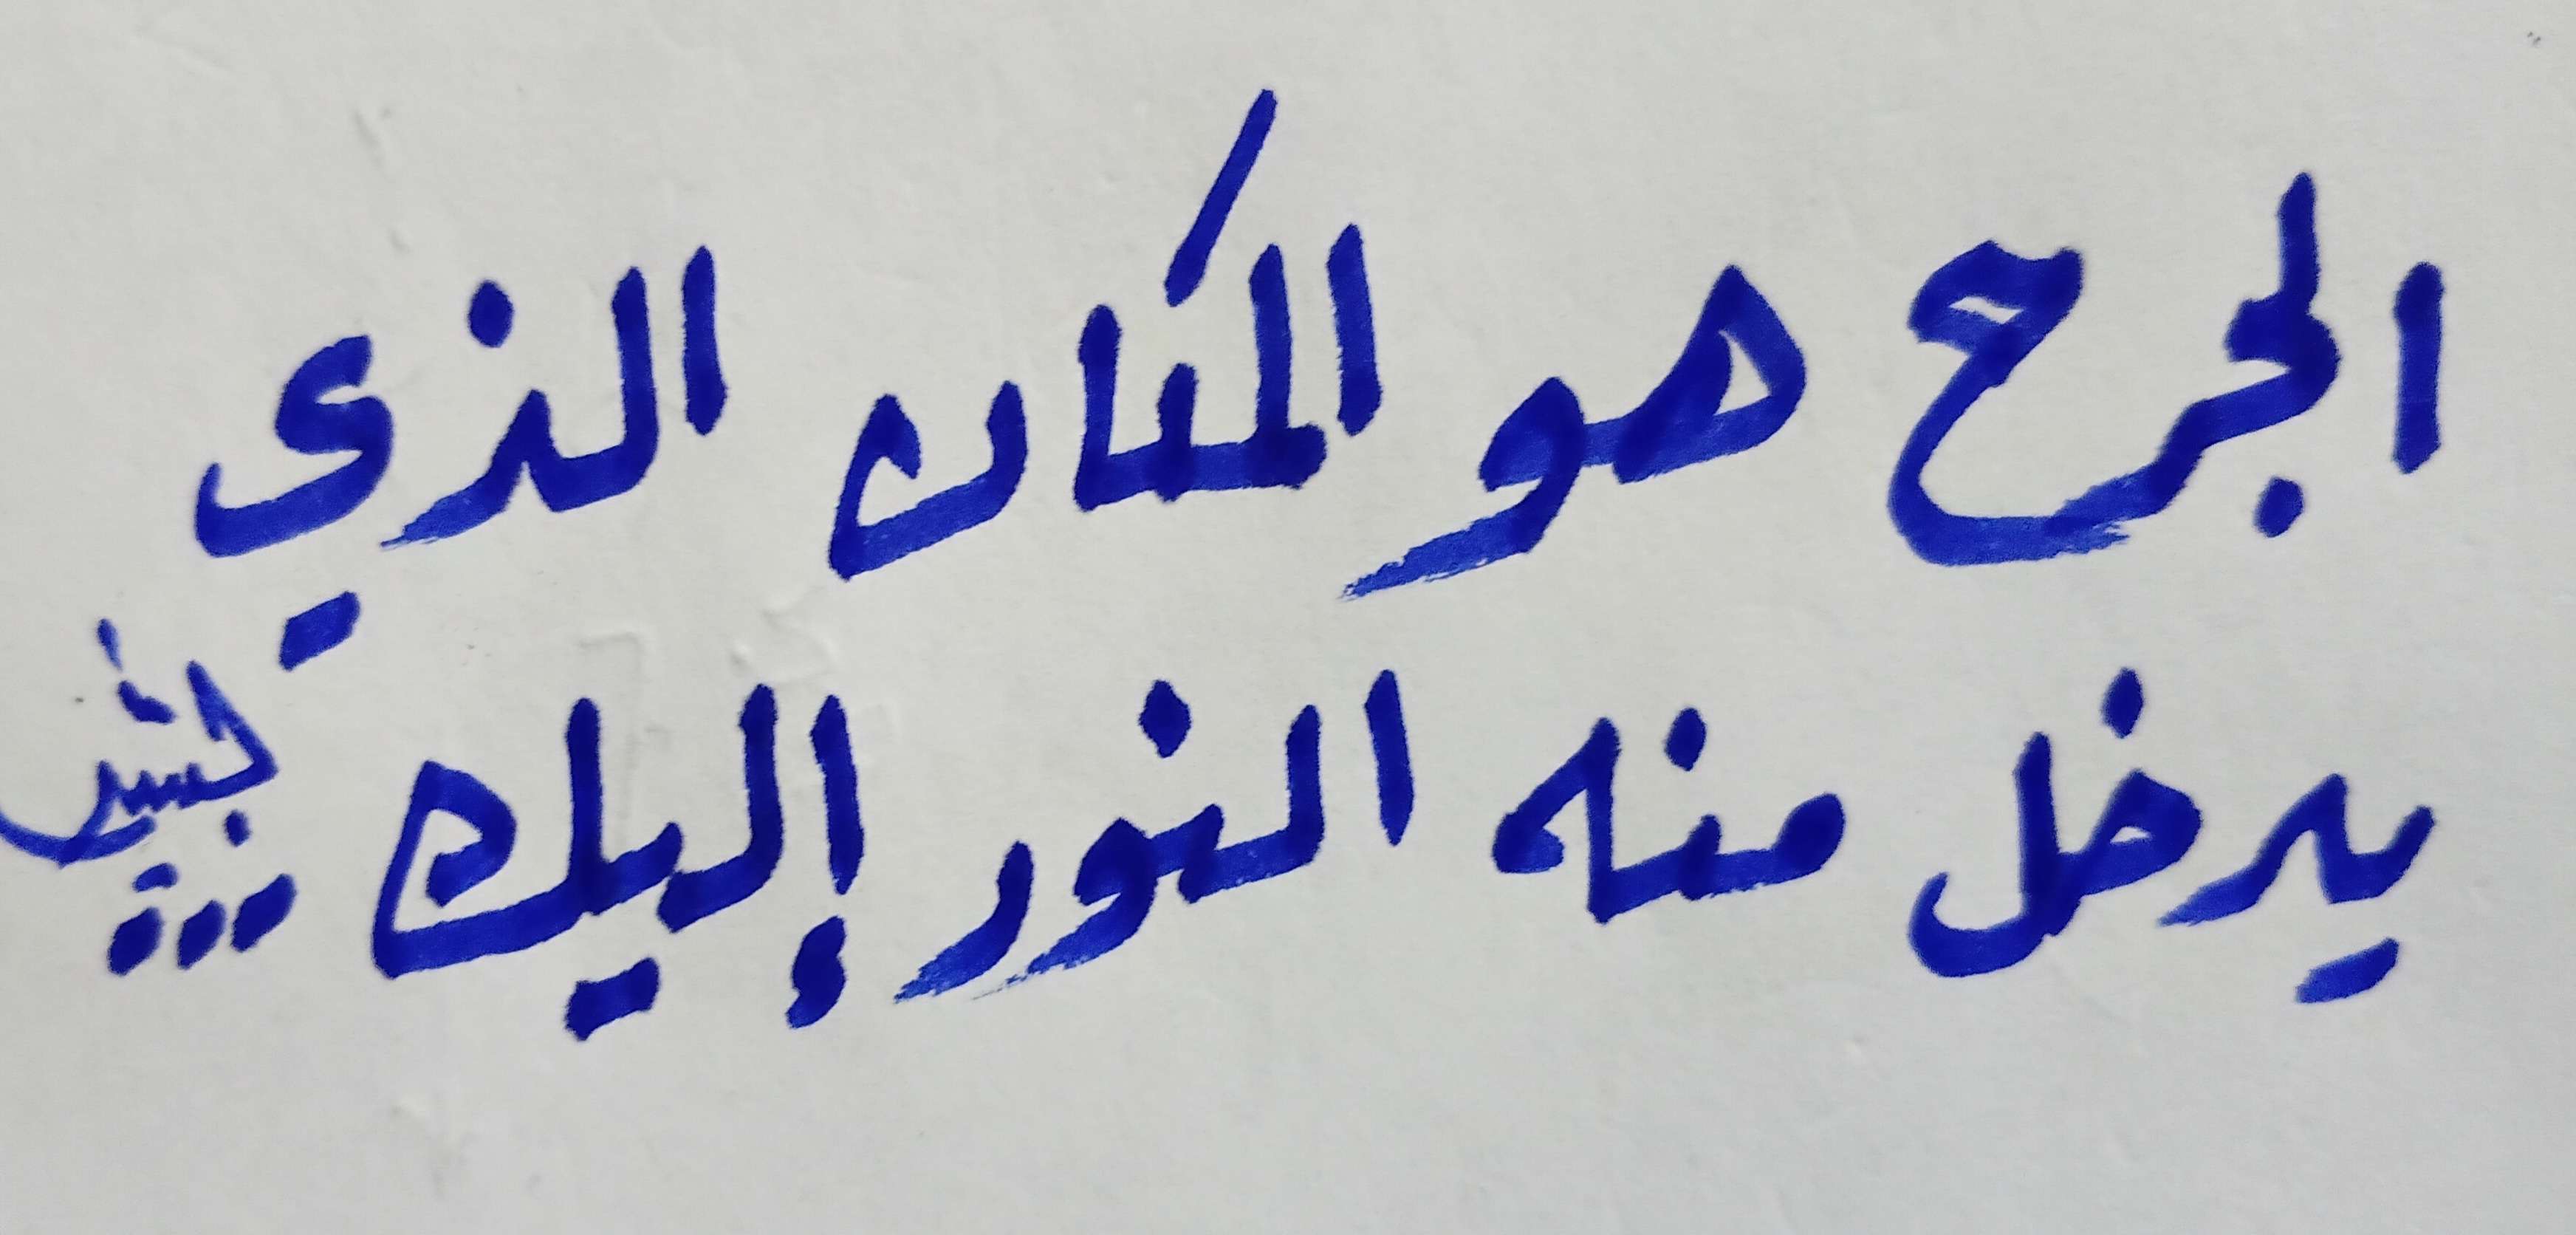 الجرح هو المكان الذي
يدخل منه النور إليك ...